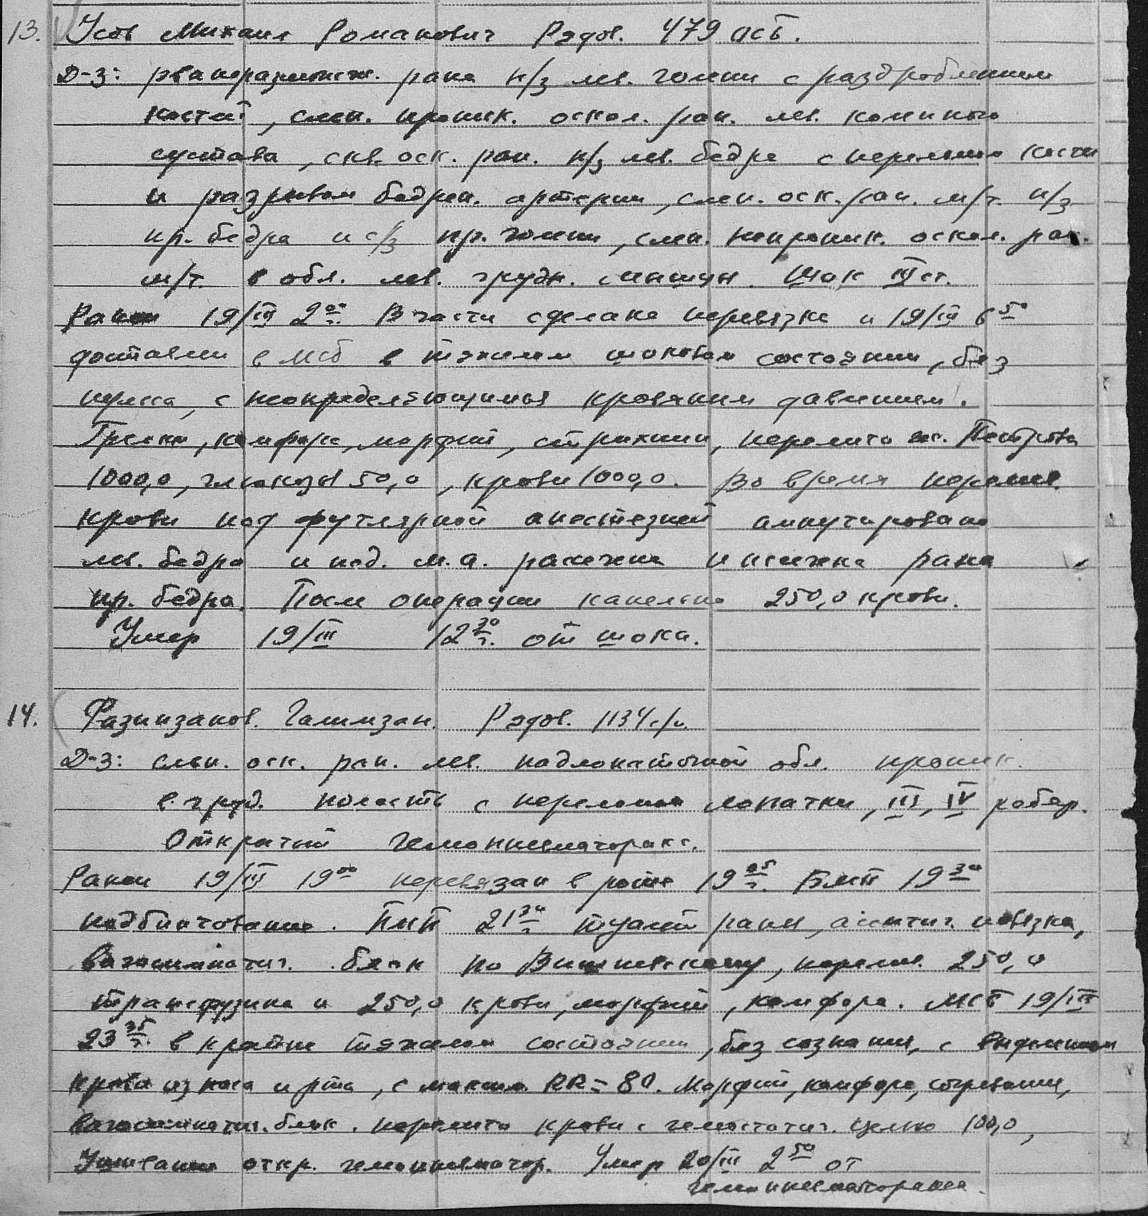 13. Усов Михаил Романович Рядов. 479 осб.
Д-з: рваноразмозж. рана н/з лев. голени с раздроблением
костей, слеп. проник. оскол. ран. лев. коленного
сустава, скв. оск. ран. н/з лев. бедра с переломом кости
и разрывом бедрен. артерии, слеп. оск. ран. м/т. н/з
пр. бедра и с/з пр. голени, слеп. непроник. оскол. ран.
м/т. в обл. лев. грудн. мышцы. Шок III ст.
Ранен 19/III 2⁰⁰. В части сделана перевязка и 19/III 6⁵⁰
доставлен в МСБ в тяжелом шоковом состоянии, без
пульса, с неопределяющимся кровяным давлением.
Грелки, камфора, морфий, стрихнин, перелито Петрова
1000,0, глюкозы 50,0, крови 1000,0. Во время перелив.
крови под футлярной анестезией ампутировано
лев. бедро и под м.а. рассечена и иссечена рана
пр. бедра. После операции капельно 250,0 крови.
Умер 19/III 12³⁰ от шока.
14. Галимзан. Рядов. 1134 с/п
Д-з: слеп. оск. ран. лев. надлопаточной обл. проник.
в груд. полость с переломом лопатки, III, IV ребер.
Открытый гемопневмоторакс.
Ранен 19/III 19⁰⁰ перевязан в роте 19⁰⁵. БМП 19³⁰
подбинтование. ПМП 21³⁰ туалет раны, асептич. повязка,
вагосимпатич. блок по Вишневскому, перелив. 250,0
трансфузина и 250,0 крови, морфий, камфора. МСБ 19/III
23³⁵ в крайне тяжелом состоянии, без сознания, с выделением
крови из носа и рта, с RR = 80. Морфий, камфора, согревание,
вагосимпатич. блок. перелито крови с гемостатич. целью 100,0,
Ушивание откр. гемопневмотор. Умер 20/III 2⁵⁰ от
гемопневмоторакса.